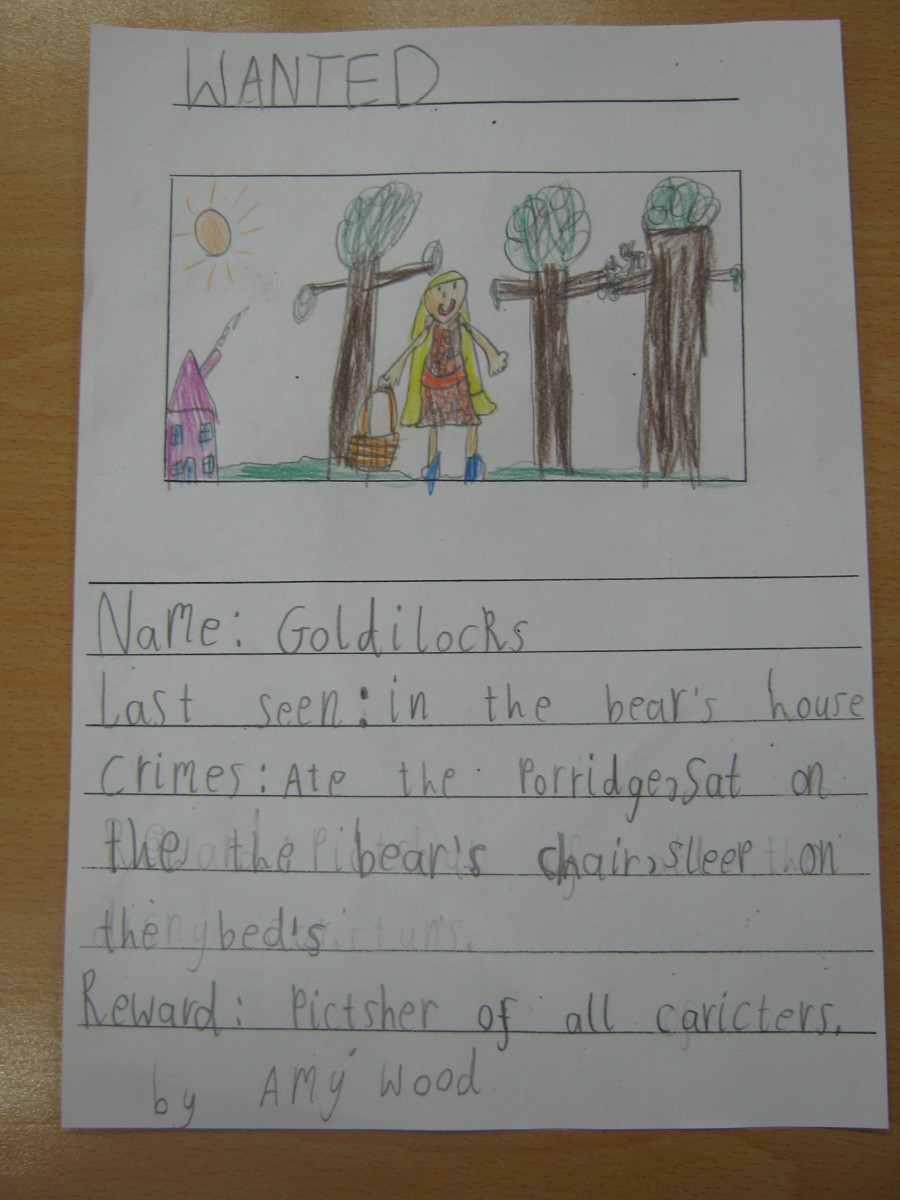 WANTED
Name: Goldilocks
Last seen: in the bear's house
Crimes: Ate the Porridge, Sat on
the the bear's chair, sleep on
the bed's
Reward: Pictsher of all caricters.
by Amy Wood